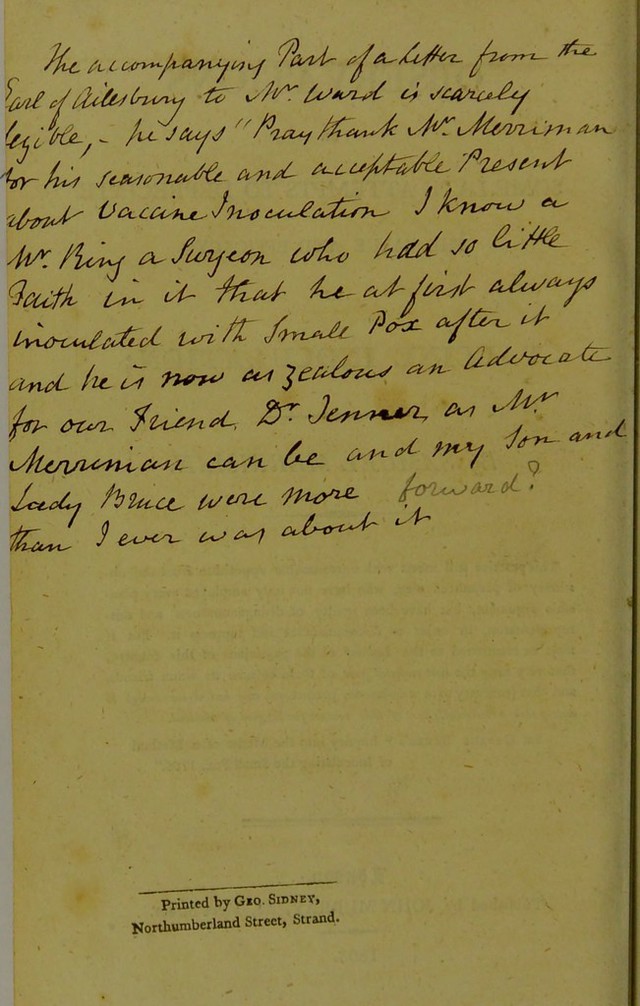 The accompanying Part of a Letter from the
Earl of Ailesbury to Mr. Ward is scarcely
legible, - he says "Pray thank Mr. Merriman
for his seasonable and acceptable Present
about Vaccine Inoculation I know a
Mr. Ring a Surgeon who had so little
Faith in it that he at first always
inoculated with Small Pox after it
and he is now as zealous an Advocate
for our Friend Dr. Jenner as Mr.
Merriman can be and my Son and
Lady Bruce were more forward?
than I ever was about it
Printed by GEO. SIDNEY,
Northumberland Street, Strand.